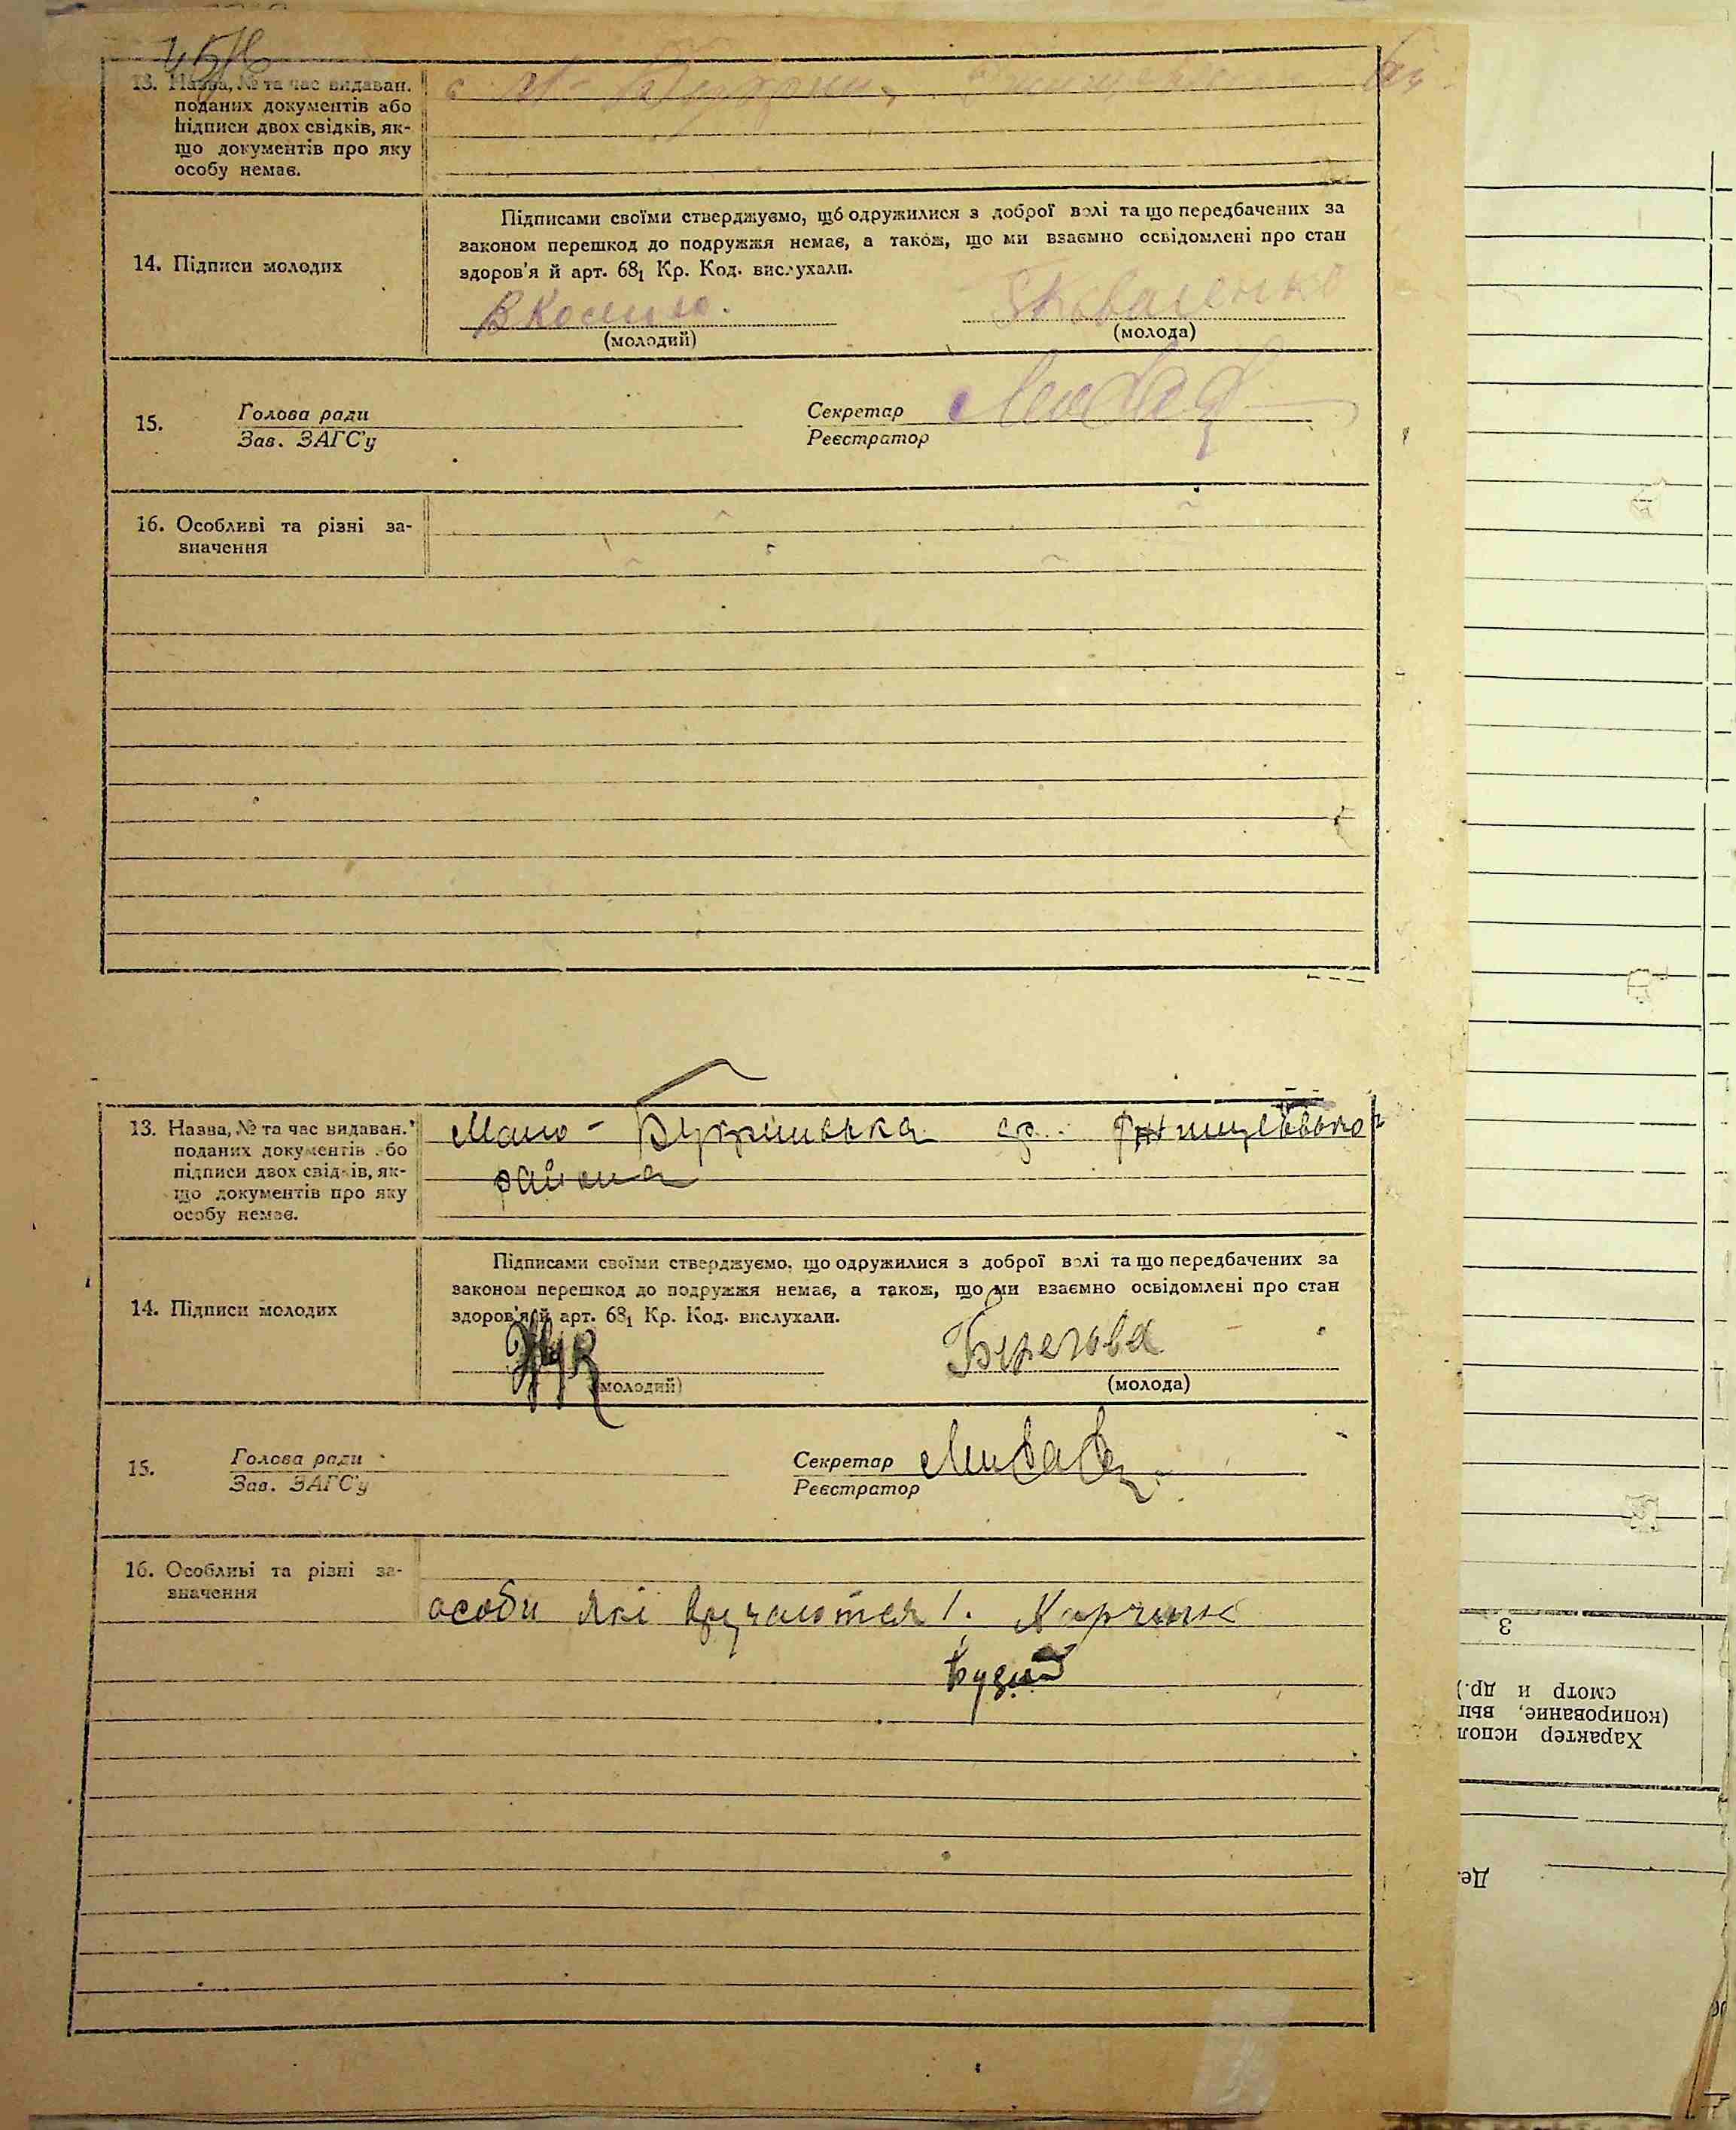 13. Назва, № та час видаван.
поданих документів або
підписи двох свідків, як-
що документів про яку
особу немає.
с М-Букрин,
14. Підписи молодих
Підписами своїми стверджуємо, що одружилися з доброї волі та що передбачених за
законом перешкод до подружжя немає, а також, що ми взаємно освідомлені про стан
здоров'я й арт. 68₁ Кр. Код. вислухали.
Коваленко
(молодий) (молода)
15. Голова ради Секретар
Зав. ЗАГС'у Реєстратор
16. Особливі та різні за-
значення
13. Назва, № та час видаван.
поданих документів або
підписи двох свідків, як-
що документів про яку
особу немає.
Мало-Букринська
района
14. Підписи молодих
Підписами своїми стверджуємо, що одружилися з доброї волі та що передбачених за
законом перешкод до подружжя немає, а також, що ми взаємно освідомлені про стан
здоров'я й арт. 68₁ Кр. Код. вислухали.
Жук Берегова
(молодий) (молода)
15. Голова ради Секретар
Зав. ЗАГС'у Реєстратор
16. Особливі та різні за-
значення
особи які 1.
3
Характер испол
(копирование, вып
смотр и др.)
Де